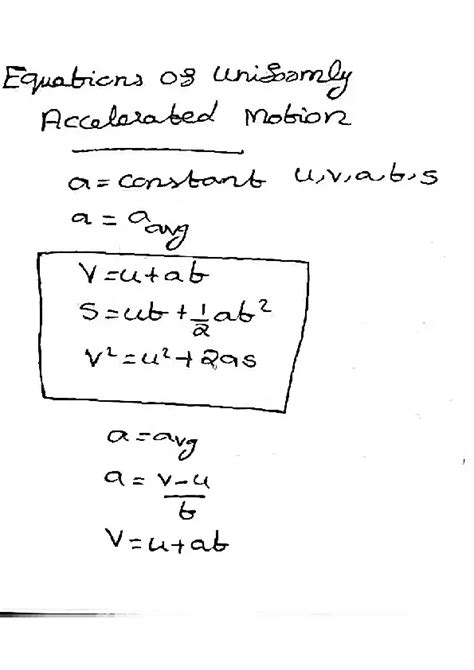 Equations of Uniformly
Accelerated Motion
a = constant u, v, a, t, s
a = a_avg
V = u + at
S = ut + 1/2 at²
V² = u² + 2as
a = avg
a = v - u / t
V = u + at